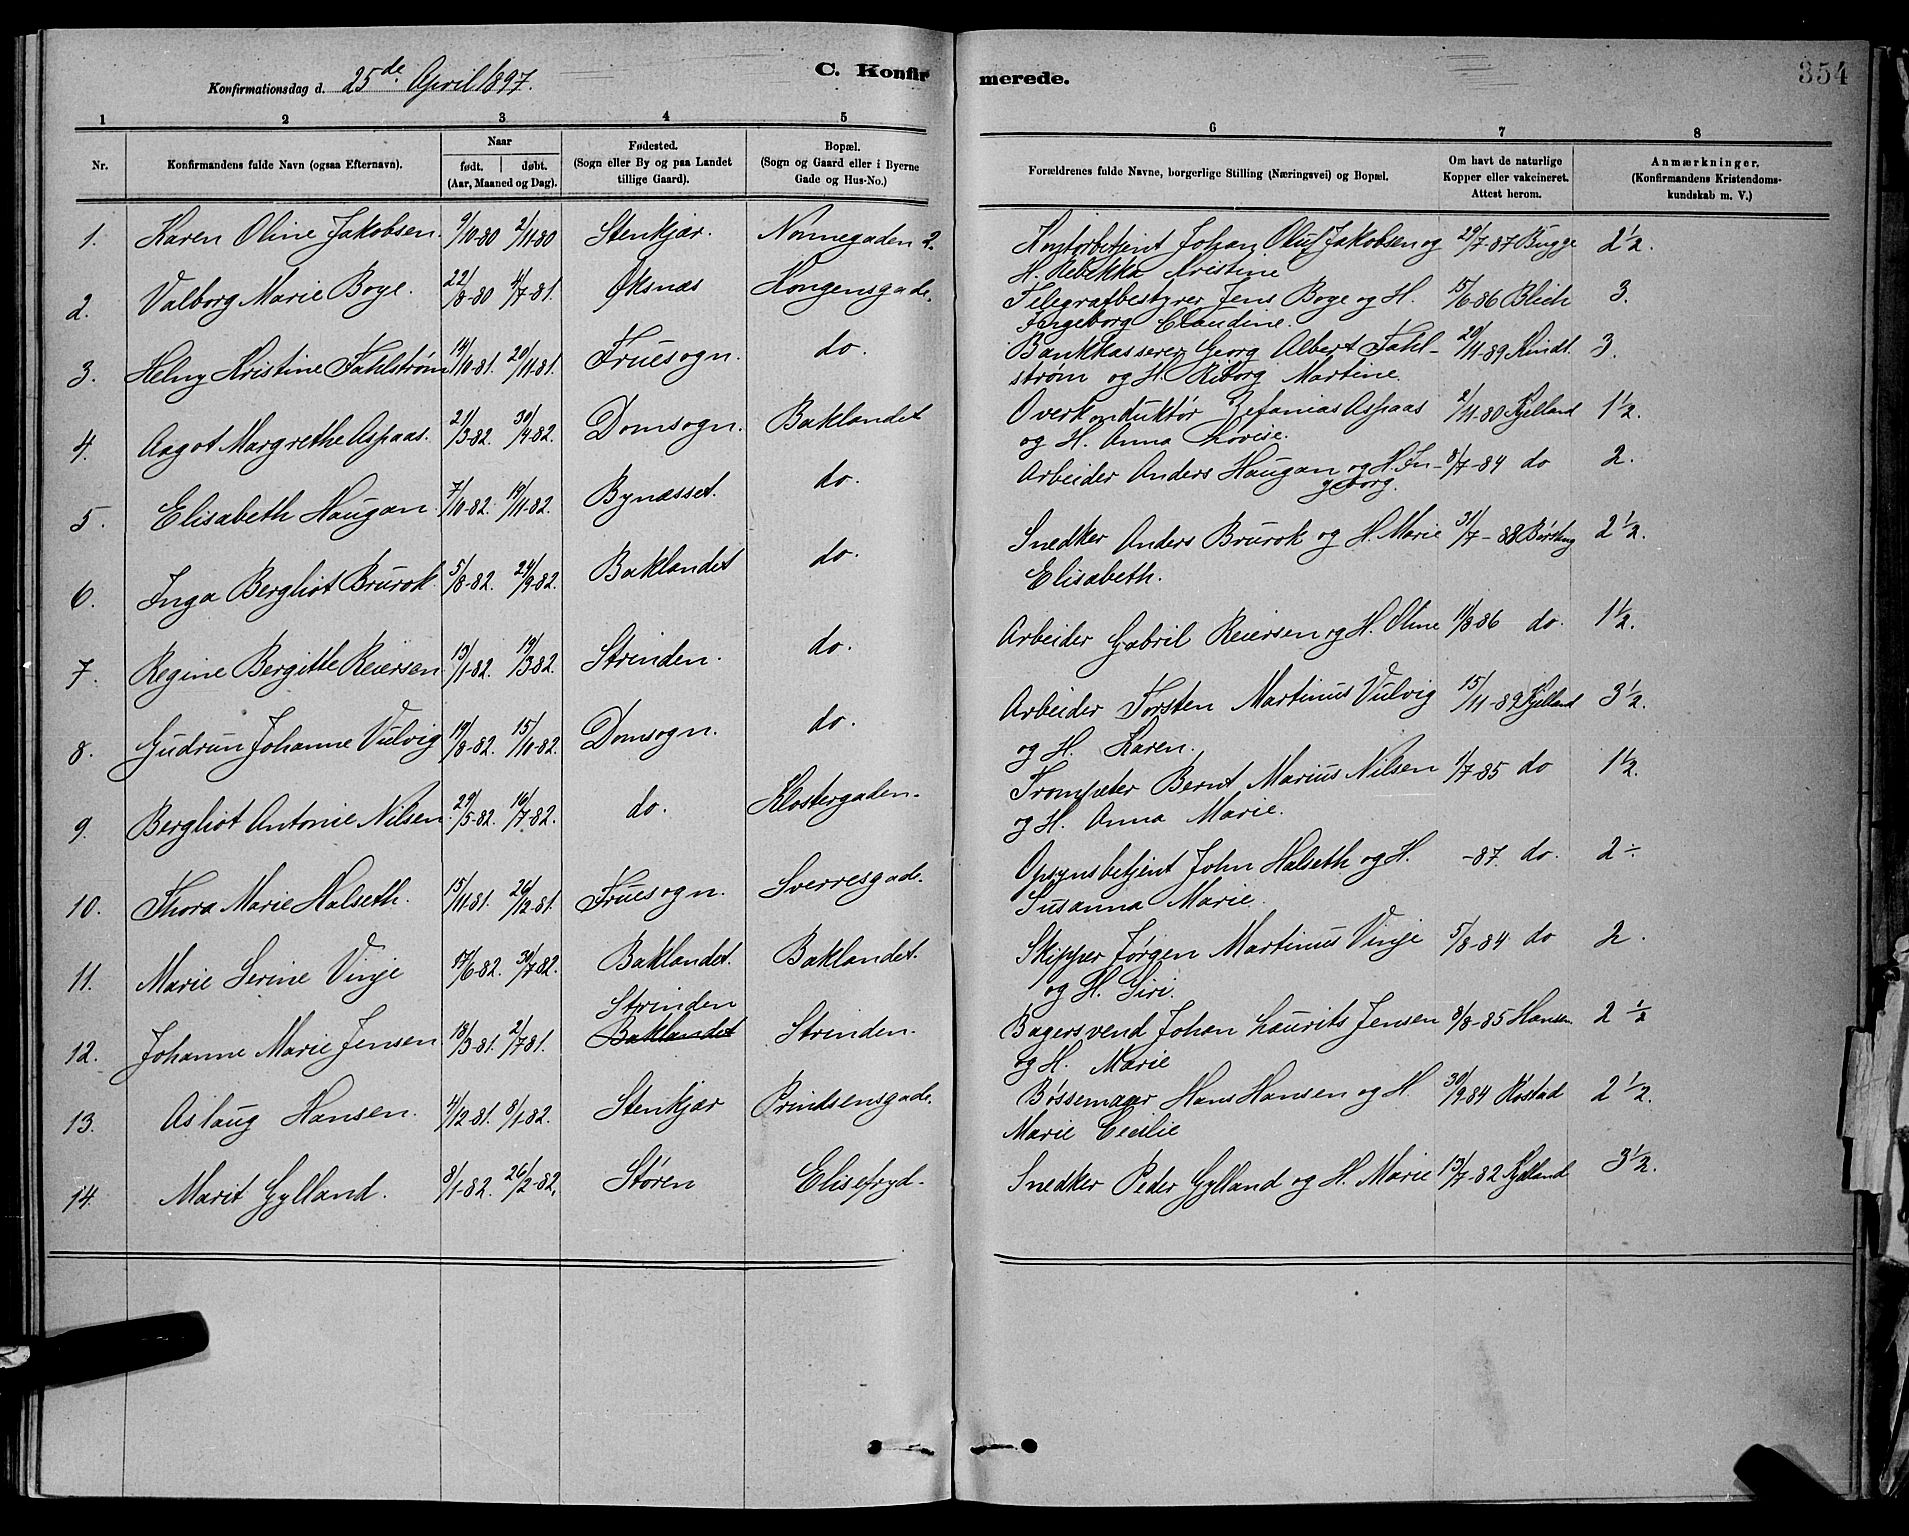 Konfirmationsdag d. 25de April 1897.
C. Konfirmerede.
354
1 2 3 4 5 6 7 8
Nr.
Konfirmandens fulde Navn (ogsaa Efternavn).
Naar
født. døbt.
(Aar, Maaned og Dag).
Fødested.
(Sogn eller By og paa Landet
tillige Gaard).
Bopæl.
(Sogn og Gaard eller i Byerne
Gade og Hus-No.)
Forældrenes fulde Navne, borgerlige Stilling (Næringsvei) og Bopæl.
Om havt de naturlige
Kopper eller vakcineret.
Attest herom.
Anmærkninger.
(Konfirmandens Kristendoms-
kundskab m. V.)
1. Karen Oline Jakobsen. 9/10-80 2/11-80 Stenkjær. Nonnegaden 2. Johan Oluf Jakobsen og 29/7-87 Bugge 2½.
H. Rebekka Kristine
2. Valborg Marie Boye. 22/8-80 4/7-81. Øksnæs Kongensgade. Telegrafbestyrer Jens Boye og H. 15/6-86 Blich 3.
Ingeborg Claudine.
3. Helny Kristine Fahlstrøm 14/10-81. 20/11-81. Fruesogn. do. Bankkasserer Georg Albert Fahl- 20/11-89 Kindt. 3.
strøm og H. Reborg Martine.
4. Aagot Margrethe Aspaas. 21/3-82. 30/4-82. Domsogn. Baklandet Overkonduktør Zefanias Aspaas 2/11-80 Kjelland 1½.
og H. Anna Lovise.
5. Elisabeth Haugan. 7/10-82. 19/11-82. Bynæsset. do. Arbeider Anders Haugan og H. In- 8/7-84 do 2.
geborg.
6. Inga Bergliot Brurok. 5/8-82. 24/9-82. Baklandet do. Snedker Anders Brurok og H. Marie 31/7-88 2½.
Elisabeth.
7. Regine Bergitte Reiersen. 13/1-82. 19/3-82. Strinden. do. Arbeider Gabril Reiersen og H. Oline 11/8-86 do. 1½.
8. Gudrun Johanne Vulvig 19/8-82. 15/10-82. Domsogn. do. Arbeider Torsten Martinus Vulvig 15/11-89 Kjelland 3½.
og H. Karen.
9. Bergliot Antonie Nilsen. 29/5-82. 16/7-82. do. Klostergaden. Trompeter Bernt Marius Nilsen 1/7-85 do 1½.
og H. Anna Marie.
10. Thora Marie Halseth. 15/11-81. 26/12-81. Fruesogn. Sverresgade. Opsynsbetjent John Halseth og H. -87. do. 2
Susanna Marie.
11. Marie Serine Vinje 17/6-82. 30/7-82. Baklandet. Baklandet. Skipper Jørgen Martinus Vinje 5/8-84 do 2.
og H. Siri.
12. Johanne Marie Jensen 18/3-81. 2/7-81. Strinden Baklandet Strinden. Bagersvend Johan Laurits Jensen 8/8-85 Hansen 2½
og H. Marie
13. Aslaug Hansen. 4/12-81. 8/1-82. Stenkjær Prindsensgade. Bøssemager Hans Hansen og H. 30/9-84 Rostad 2½.
Marie Cecilie
14. Marit Gylland. 8/1-82. 26/2-82. Støren Elisefryd. Snedker Peder Gylland og H. Marie 13/7-82 Kjelland 3½.